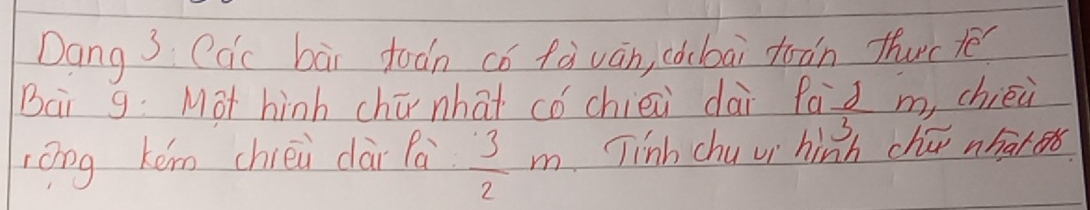 Dạng 3: Các bài toán có lời văn, các bài toán thực tế
Bài 9: Một hình chữ nhật có chiều dài là 2/3 m, chiều
rộng kém chiều dài là 3/2 m. Tính chu vi hình chữ nhật đó.